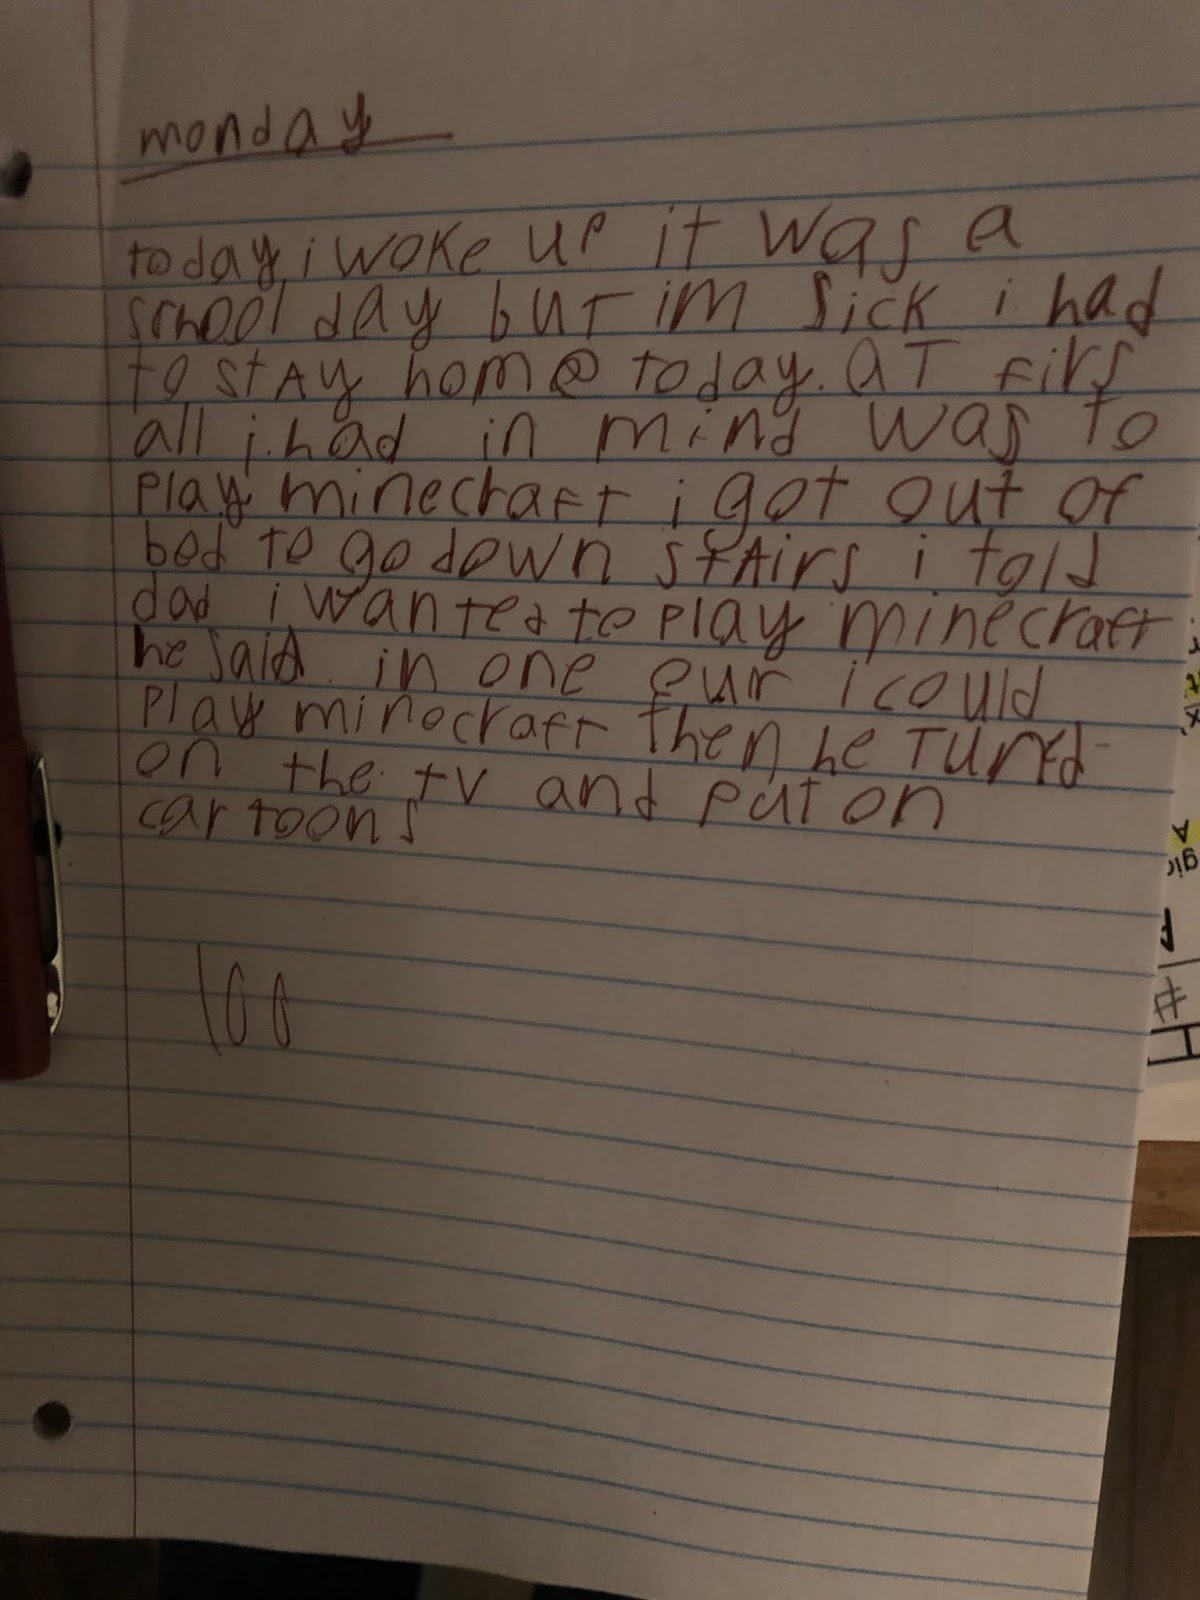 monday
today i woke up it was a
school day but im sick i had
to stay home today. aT firs
all i had in mind was to
play minecraft i got out of
bed to go down stairs i told
dad i wanted to play minecraft
he said in one our i could
play minecraft then he Tured
on the tv and put on
cartoons
100
gic
A
#